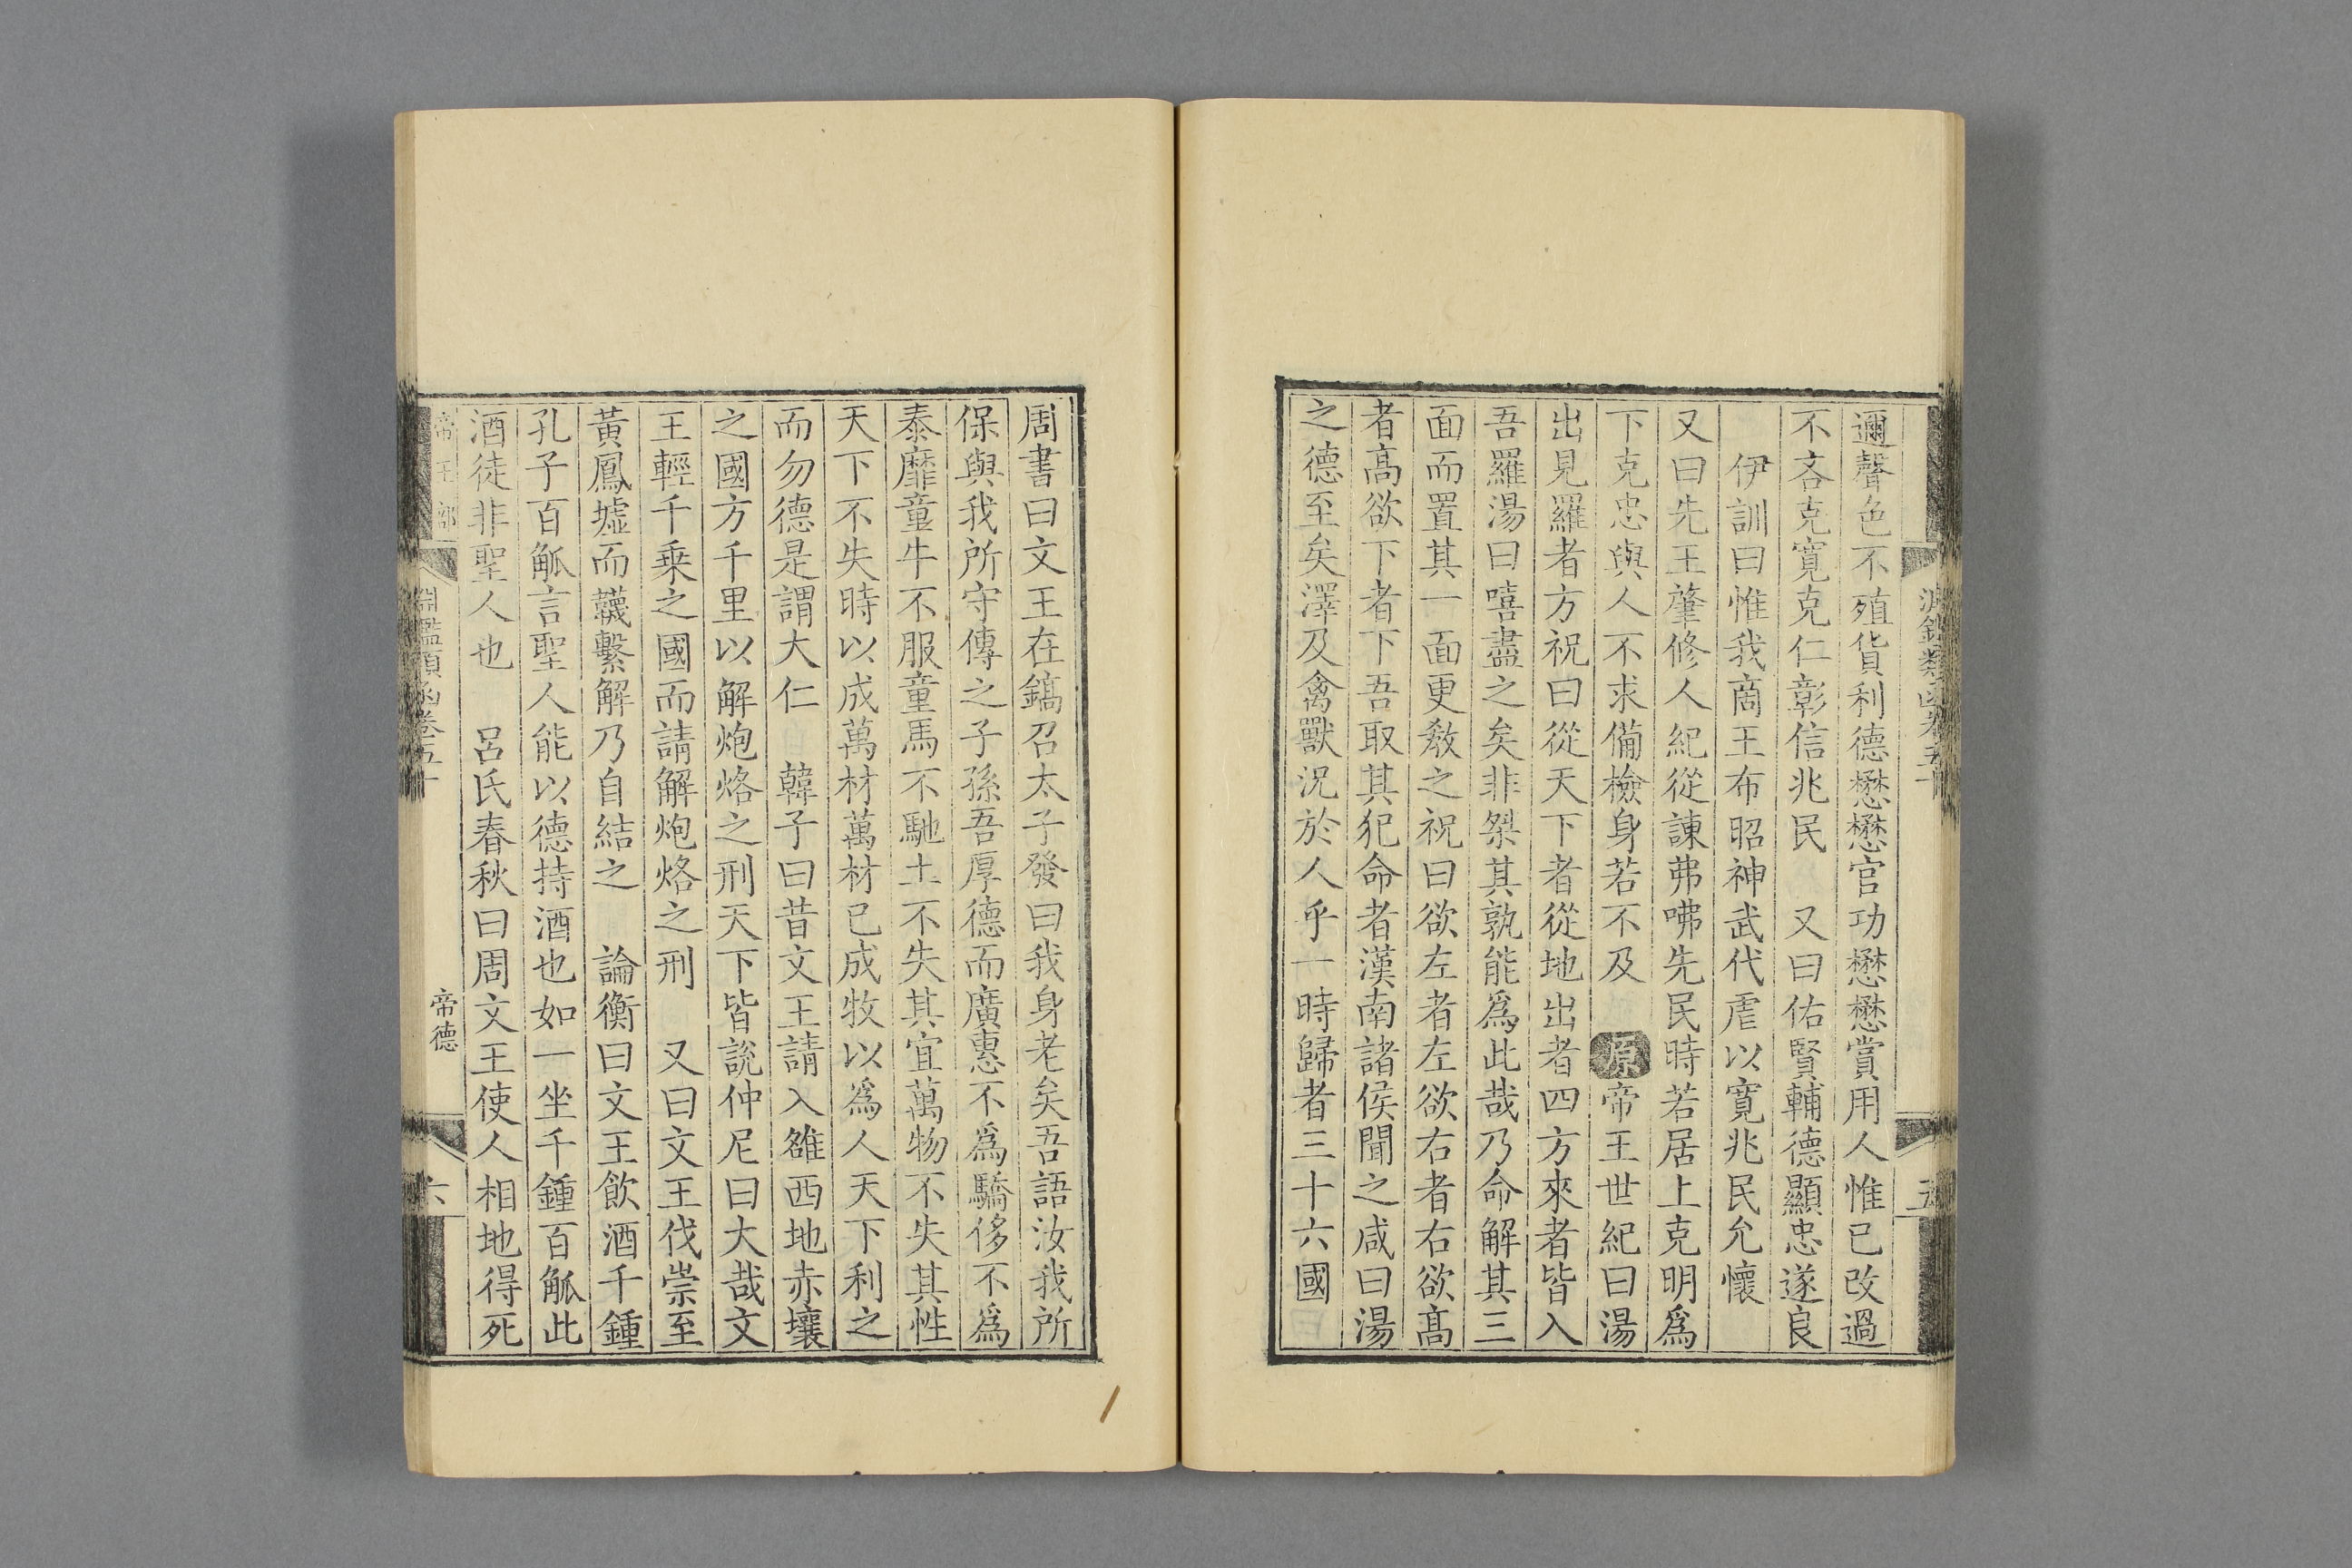 淵鑑類函卷五十
五
邇聲色不殖貨利德懋懋官功懋懋賞用人惟已改過
不吝克寛克仁彰信兆民　又曰佑賢輔德顯忠遂良
伊訓曰惟我商王布昭神武代虐以寬兆民允懷
又曰先王肇修人紀從諫弗咈先民時若居上克明爲
下克忠與人不求備檢身若不及　原帝王世紀曰湯
出見羅者方祝曰從天下者從地出者四方來者皆入
吾羅湯曰嘻盡之矣非桀其孰能爲此哉乃命解其三
面而置其一面更敎之祝曰欲左者左欲右者右欲高
者高欲下者下吾取其犯命者漢南諸侯聞之咸曰湯
之德至矣澤及禽獸況於人乎一時歸者三十六國
周書曰文王在鎬召太子發曰我身老矣吾語汝我所
保與我所守傳之子孫吾厚德而廣惠不爲驕侈不爲
泰靡童牛不服童馬不馳土不失其宜萬物不失其性
天下不失時以成萬材萬材已成牧以爲人天下利之
而勿德是謂大仁　韓子曰昔文王請入雒西地赤壤
之國方千里以解炮烙之刑天下皆說仲尼曰大哉文
王輕千乗之國而請解炮烙之刑　又曰文王伐崇至
黃鳳墟而韤繫解乃自結之　論衡曰文王飮酒千鍾
孔子百觚言聖人能以德持酒也如一坐千鍾百觚此
酒徒非聖人也　呂氏春秋曰周文王使人相地得死
帝王部
淵鑑類函卷五十
帝德
六